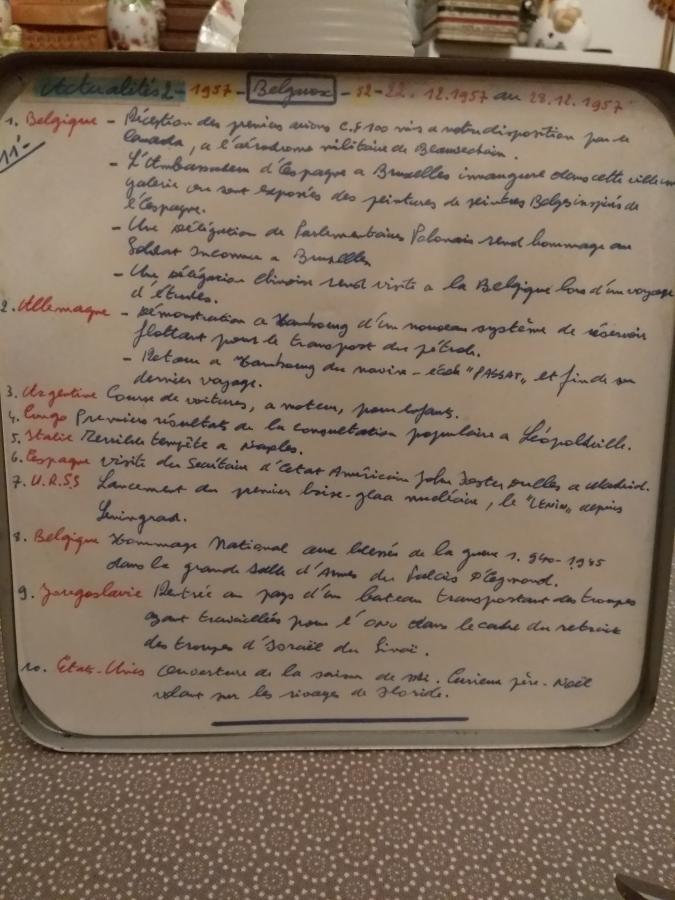 Actualités 2 - 1957 - Belgavox - 52 - 22.12.1957 au 28.12.1957
1. Belgique - Réception des premiers avions C.F 100 mis a notre disposition par le
11'
Canada, a l'aérodrome militaire de Beauvechain.
- L'Ambassadeur d'Espagne a Bruxelles inaugure dans cette ville une
galerie ou sont exposées des peintures de peintres Belges inspirés de
l'Espagne.
- Une Délégation de Parlementaires Polonais rend hommage au
Soldat Inconnu a Bruxelles
- Une délégation chinoise rend visite a la Belgique lors d'un voyage
d'études.
2. Allemagne - Démonstration a Hambourg d'un nouveau système de réservoir
flottant pour le transport du pétrole.
- Retour a Hambourg du navire-école "PASSAT" et fin de son
dernier voyage.
3. Argentine Course de voitures, a moteur, pour enfants.
4. Congo Premiers résultats de la consultation populaire a Léopoldville.
5. Italie Terrible tempête a Naples.
6. Espagne visite du Secrétaire d'Etat Américain John Foster Dulles a Madrid.
7. U.R.S.S Lancement du premier brise-glace nucléaire, le "LENIN" depuis
Leningrad.
8. Belgique Hommage National aux blessés de la guerre 1.940-1945
dans la grande salle d'Armes du Palais D'Egmond.
9. Yougoslavie Rentrée au pays d'un bateau transportant des troupes
ayant travaillées pour l'ONU dans le cadre du retrait
des troupes d'Israël du Sinaï.
10. Etats-Unis Ouverture de la saison de ski. Curieux père-Noël
volant sur les rivages de Floride.